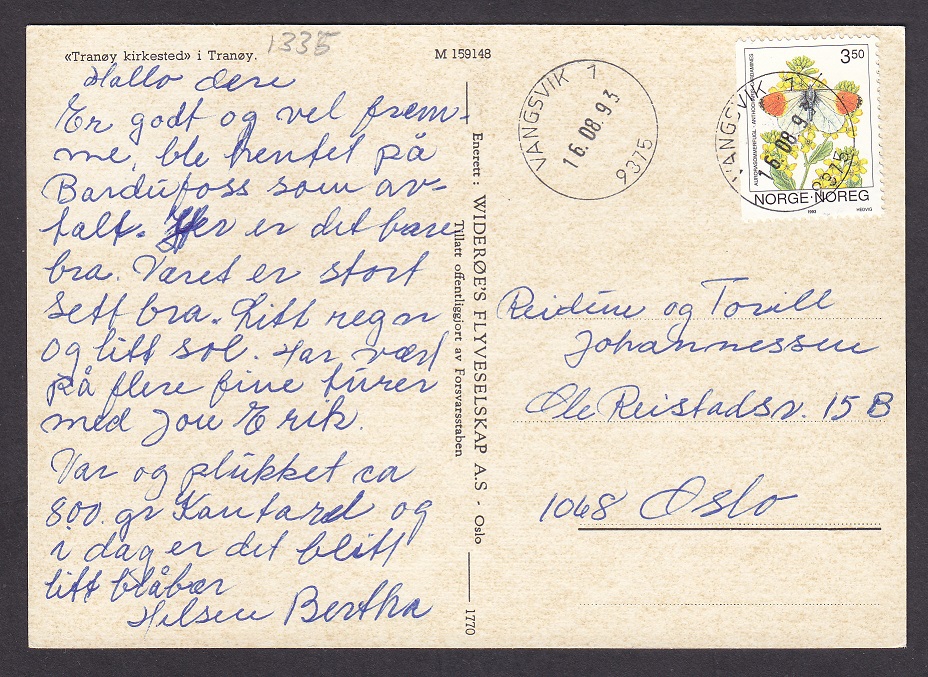 1335
«Tranøy kirkested» i Tranøy.
M 159148
Hallo dere
Er godt og vel frem-
me, ble hentet på
Bardufoss som av-
talt. Her er det bare
bra. Været er stort
sett bra. Litt regn
og litt sol. Har vært
på flere fine turer
med Jon Erik.
Var og plukket ca
800. gr Kantarel og
i dag er det blitt
litt blåbær
Hilsen Bertha
Enerett: WIDERØE'S FLYVESELSKAP A.S - Oslo
1770
Tillatt offentliggjort av Forsvarsstaben
VANGSVIK 1
16.08.93
9375
VANGSVIK 1
16.08.93
9375
3 50
NORGE·NOREG
1993
HEDVIG
Reidun og Torill
Johannessen
Ole Reistadsv. 15 B
1068 Oslo